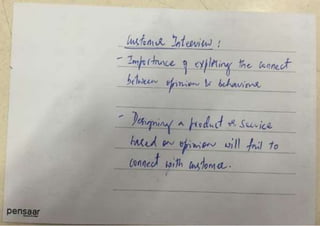 Customer Interview :
- Importance of exploring the connect
between opinion & behaviour
- Designing a product or service
based on opinion will fail to
connect with customer.
pensaar